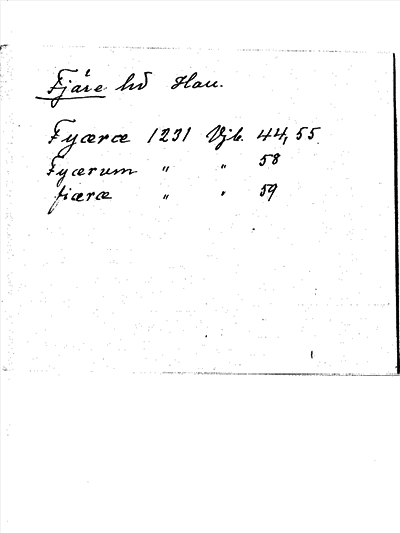 Fjäre hd Hall.
Fyæræ 1231 Vjb. 44, 55
Fyærum " " 58
fiæræ " " 59